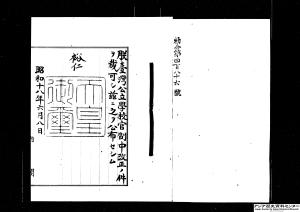 勅令第四百八十六號
朕臺灣公立學校官制中改正ノ件
ヲ裁可シ茲ニ之ヲ公布セシム
裕仁
天皇御璽
昭和十八年六月八日
アジア歴史資料センター